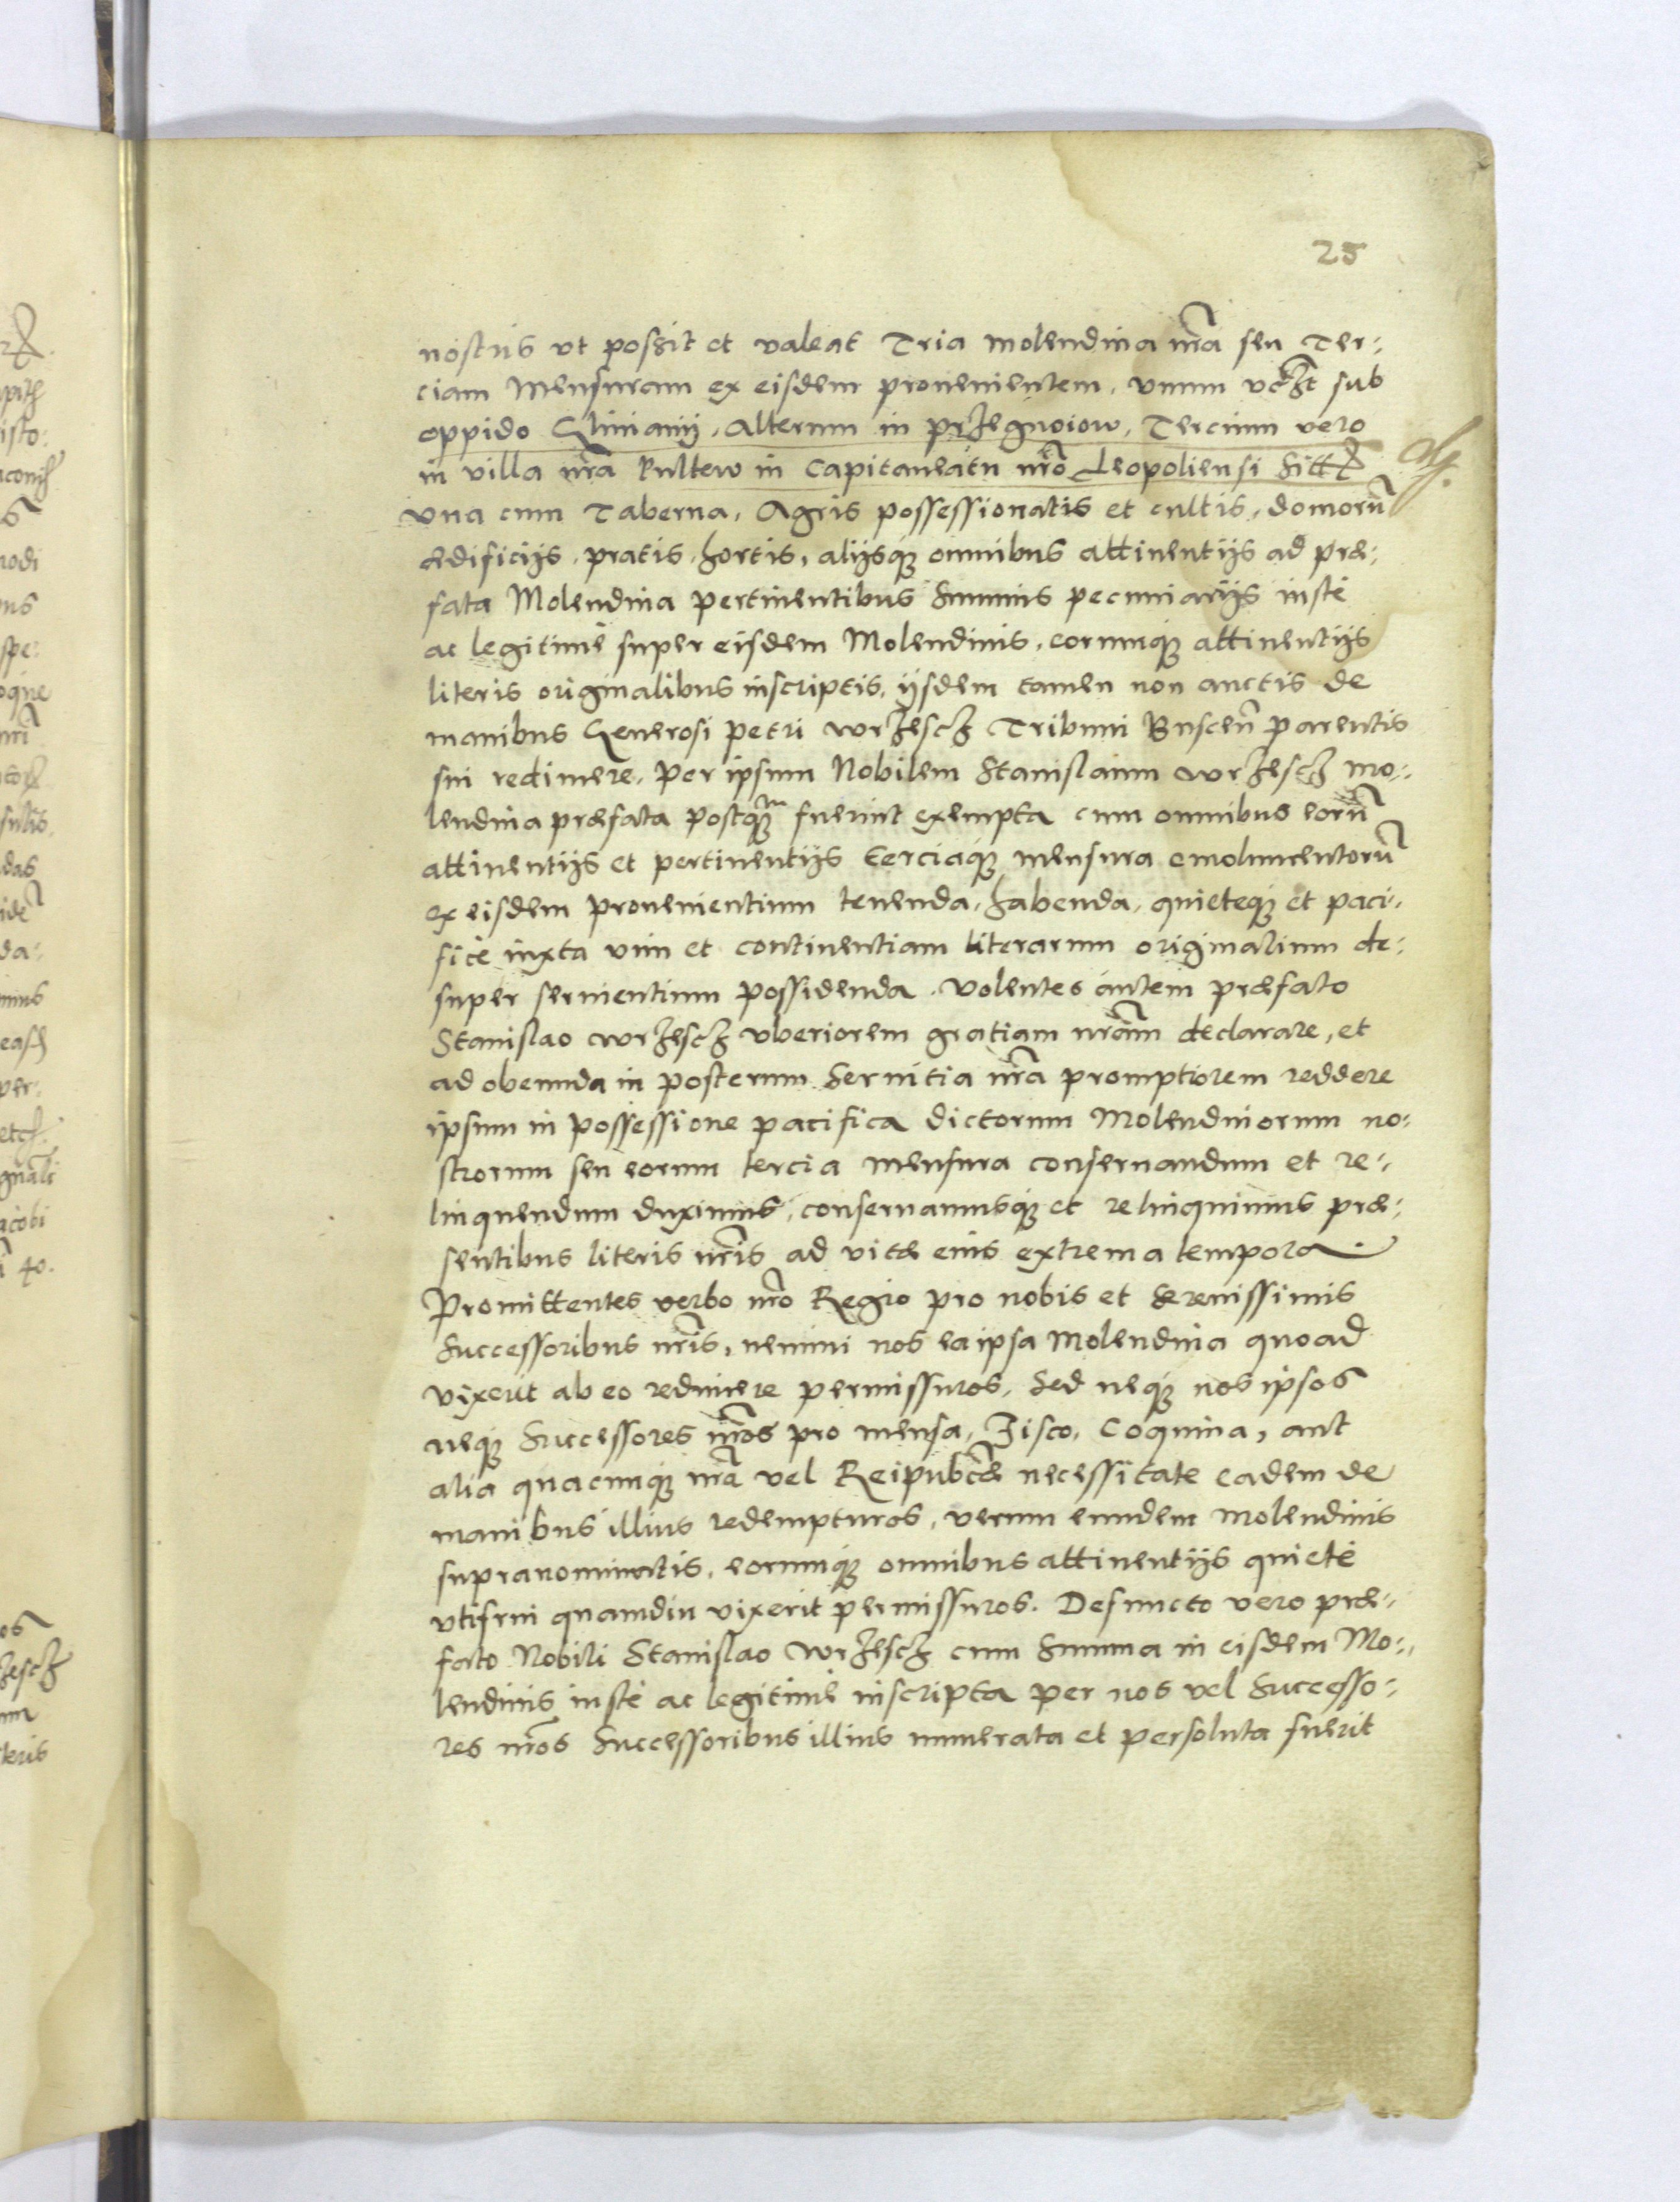 25
nostris vt possit et valeat Tria molendina nrã seu Ter-
ciam Mensuram ex eisdem provenientem, vnum vczt sub
oppido Glinianij, Alterum in przegnoiow, Tercium vero
in villa nrã Kultew in Capitaneatu nrõ Leopoliensi sitt
vna cum Taberna, Agris possessionatis et cultis, domorũ
ædificijs, pratis, hortis, alijsqʒ omnibus attinentijs ad præ-
fata Molendina pertinentibus Summis pecuniarijs iustè
ac legitimè super eisdem Molendinis, eorumqʒ attinentijs
literis originalibus inscriptis, ijsdem tamen non auctis de
manibus Generosi Petri wrzescz Tribuni Buscen̄ parentis
sui redimere, Per ipsum Nobilem Stanislaum wrzescz mo-
lendina præfata postqʒm fuerint exempta cum omnibus eorũ
attinentijs et pertinentijs terciaqʒ mensura emolumentorũ
ex eisdem provenientium tenenda, habenda, quieteqʒ et paci-
ficè iuxta vim et continentiam literarum originalium de-
super servientium possidenda. Volentes autem præfato
Stanislao wrzescz vberiorem gratiam nrãm declarare, et
ad obeunda in posterum Servitia nrã promptiorem reddere
ipsum in possessione pacifica dictorum Molendinorum no-
strorum seu eorum tercia mensura conservandum et re-
linquendum duximus, conservamusqʒ et relinquimus præ-
sentibus literis nrĩs ad vitæ eius extrema tempora.
Promittentes verbo nrõ Regio pro nobis et Serenissimis
Successoribus nrĩs, nemini nos ea ipsa Molendina quoad
vixerit ab eo redimere permissuros, Sed neqʒ nos ipsos
neqʒ Successores nrõs pro mensa, Fisco, Coquina, aut
alia quacunqʒ nrã vel Reipublcæ necessitate eadem de
manibus illius redempturos, verum eundem Molendinis
supranominatis, eorumqʒ omnibus attinentijs quietè
vtifrui quamdiu vixerit permissuros. Defuncto vero præ-
fato Nobili Stanislao Wrzescz cum Summa in eisdem Mo-
lendinis iustè ac legitimè inscripta per nos vel Successo-
res nrõs Successoribus illius numerata et persoluta fuerit